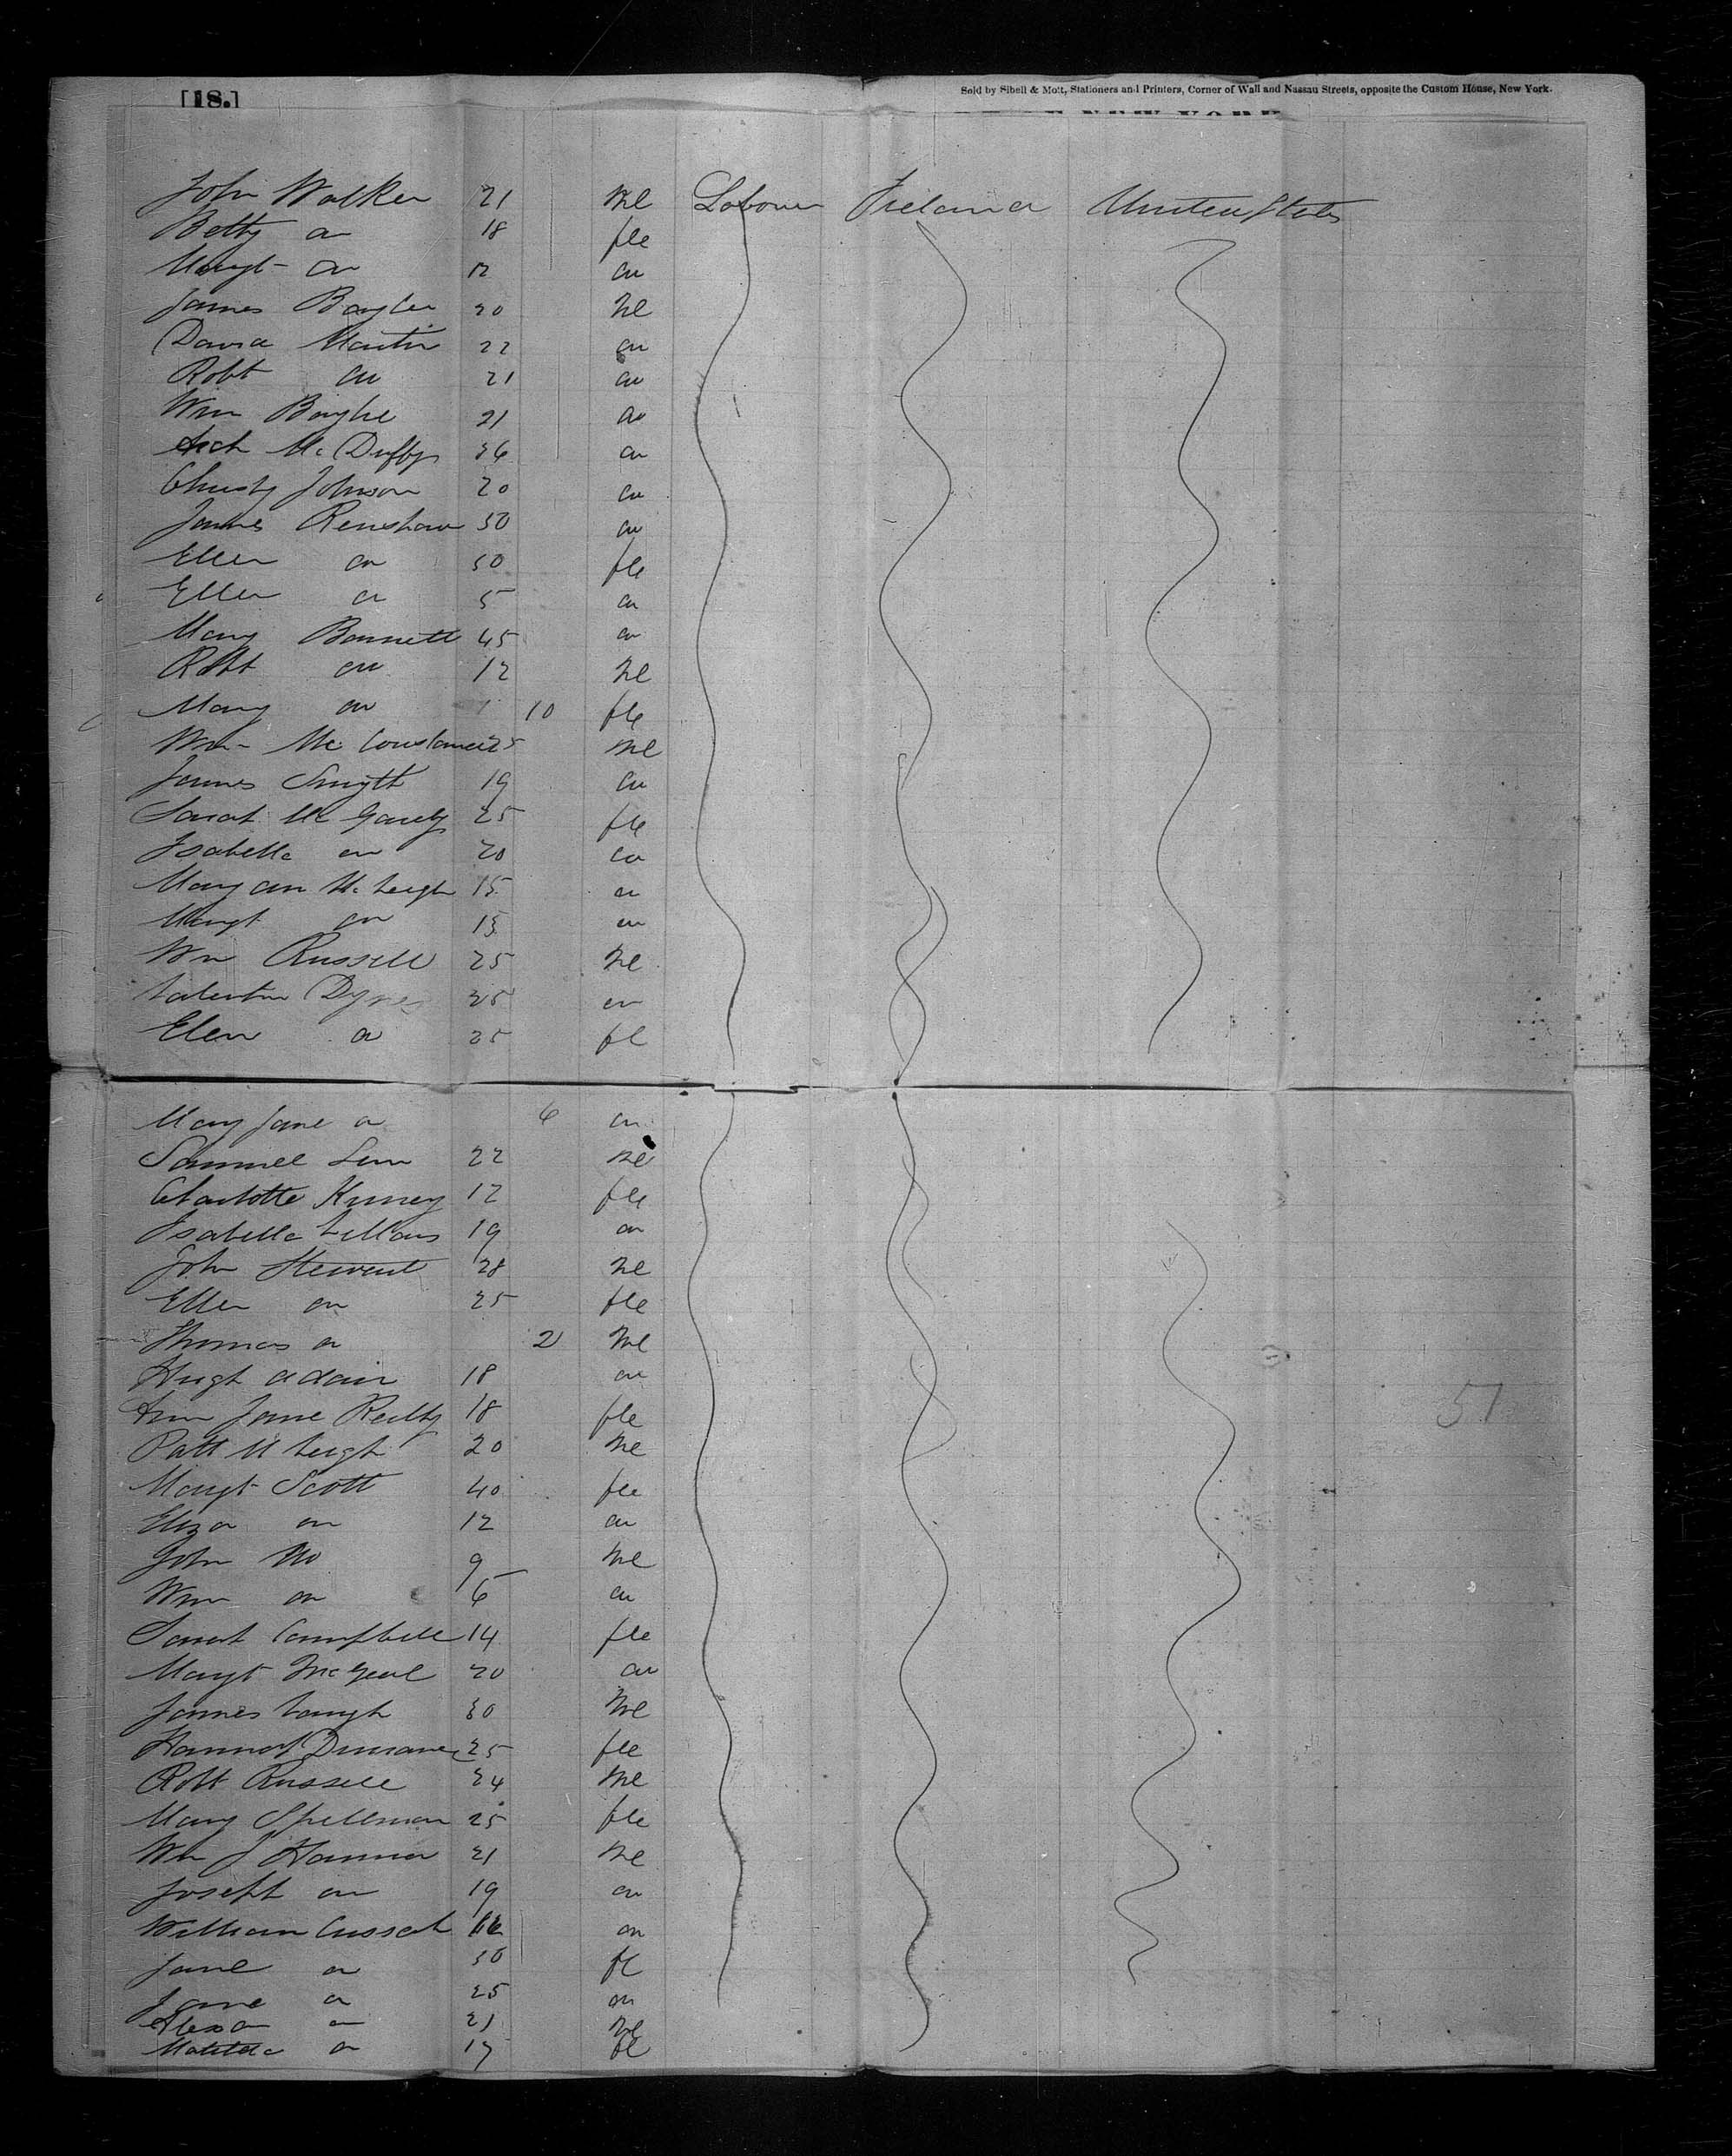 [18.]
Sold by Sibell & Mott, Stationers and Printers, Corner of Wall and Nassau Streets, opposite the Custom House, New York.
John Walker 21 Ml Labourer Ireland United States
Betty do 18 fle
Margt do 12 do
James 20 Ml
David Martin 22 do
Robt do 21 do
Wm 21 do
Arch McDuffy 36 do
Christy Johnson 20 do
James Renshaw 50 do
Ellen do 50 fle
Ellen do 5 do
Mary Barnett 45 do
Robt do 12 Ml
Mary do 10 fle
Wm Mc 25 Ml
James Smyth 19 do
Sarah Mc 25 fle
Isabella do 20 do
Mary Ann 15 do
Margt do 13 do
Wm Russell 25 Ml
Dynes 25 do
Ellen do 25 fl
Mary Jane do 6 do
Samuel 22 Ml
Charlotte Kinney 12 fle
Isabella 19 do
John Stewart 28 Ml
Ellen do 25 fle
Thomas do 2 Ml
Hugh Adair 18 do
Ann Jane Reilly 18 fle
Patt 20 Ml
Margt Scott 40 fle
51
Eliza do 12 do
John do 9 Ml
Wm do 6 do
Sarah Campbell 14 fle
Margt 20 do
James 30 Ml
Hannah 25 fle
Robt Russell 24 Ml
Mary Spellman 25 fle
Wm J Hanna 21 Ml
Joseph do 19 do
William do
Jane do 50 fl
Jane do 25 do
Alexa do 21 Ml
Matilda do 17 fl